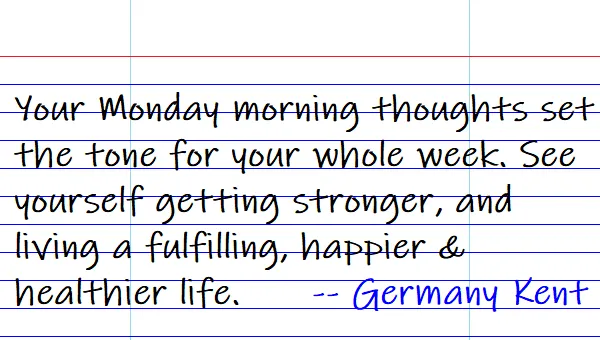 Your Monday morning thoughts set
the tone for your whole week. See
yourself getting stronger, and
living a fulfilling, happier &
healthier life. -- Germany Kent